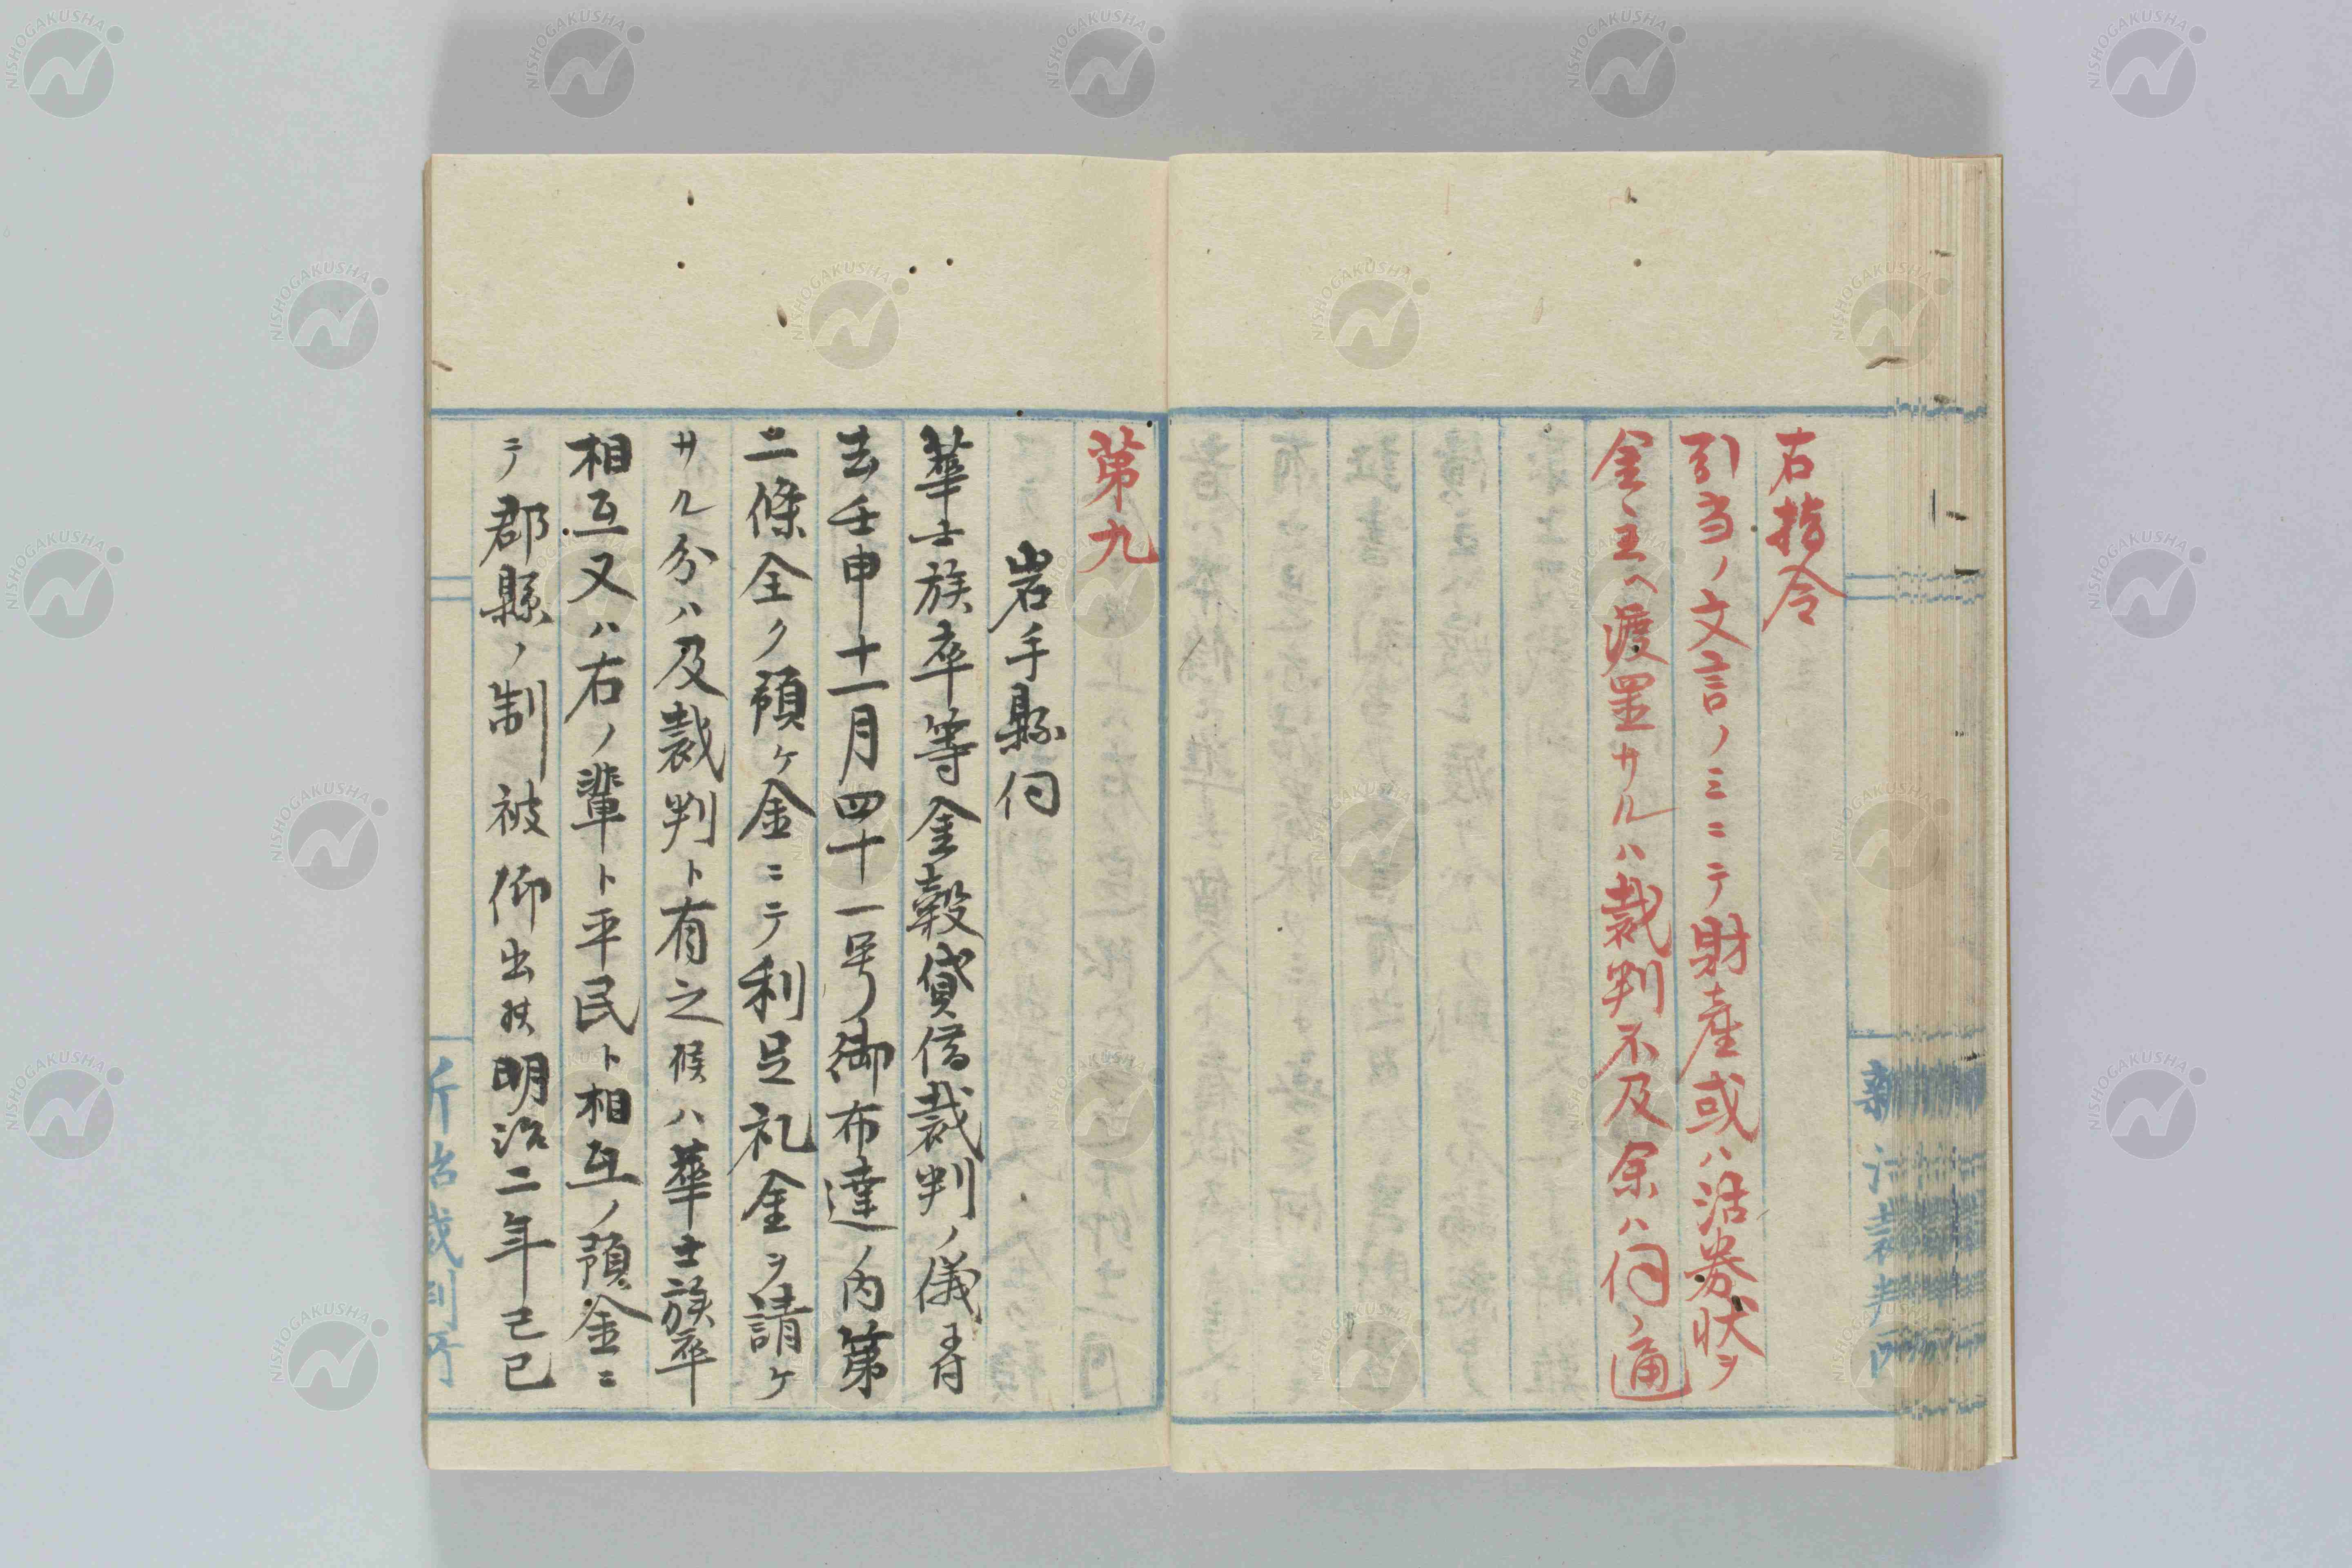 右指令
引当ノ文言ノミニテ財産或ハ沽券状ヲ
金主ヘ渡置サルハ裁判不及余ハ伺ノ通
新治裁判所
第九
岩手縣伺
華士族卒等金穀貸借裁判ノ儀ニ付
去壬申十一月四十一号御布達ノ内第
二條全ク預ケ金ニテ利足礼金ヲ請ケ
サル分ハ及裁判ト有之候ハ華士族卒
相互又ハ右ノ輩ト平民ト相互ノ預金ニ
テ郡縣ノ制被仰出候明治二年己巳
新治裁判所
NISHOGAKUSHA